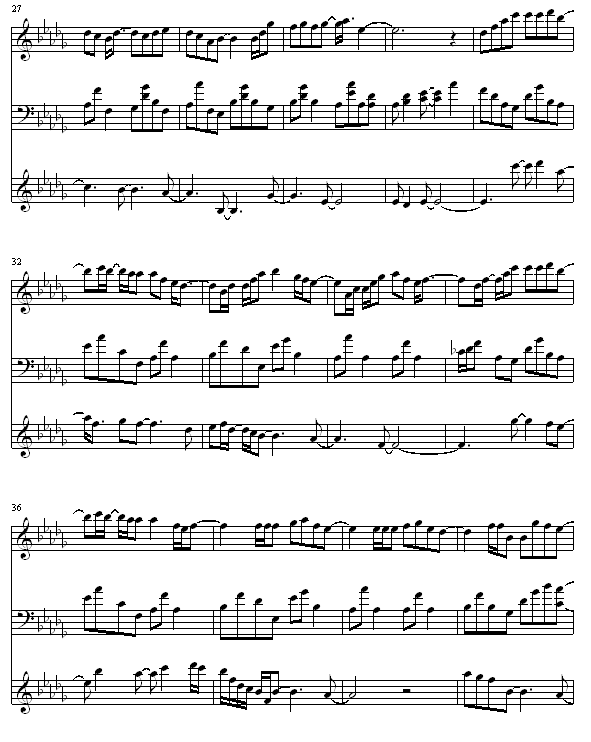 27
32
36